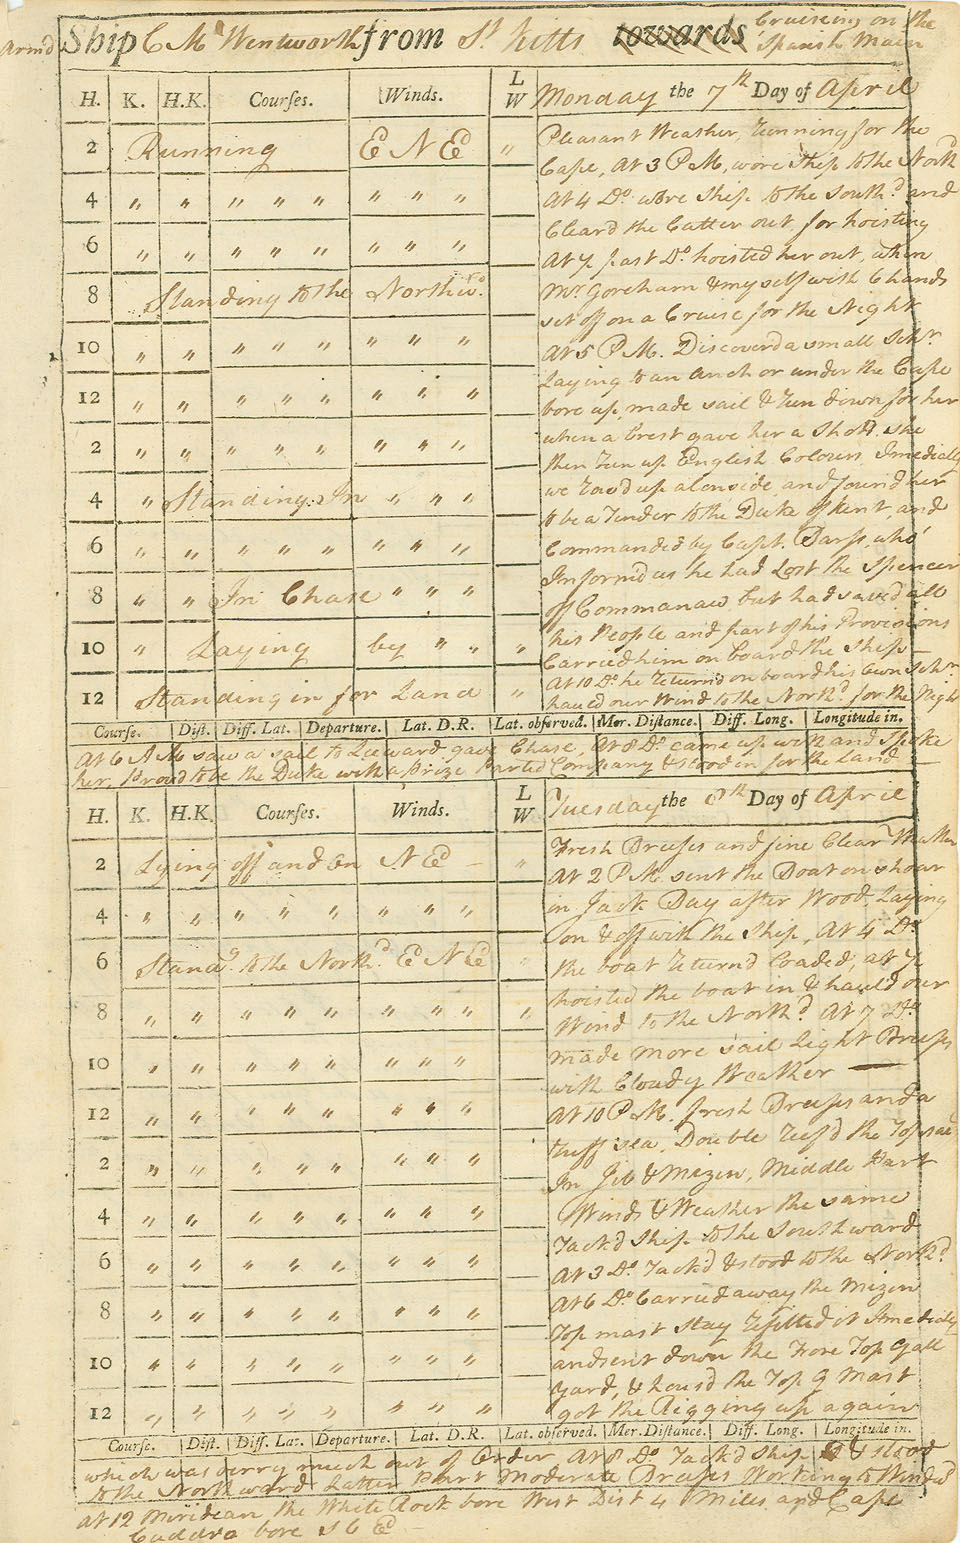 Arm'd Ship C Ms Wentworth from St Kitts towards Cruiseing on the
Spanish Main
H. K. H.K. Courses. Winds. L W Monday the 7th Day of April
2 Running E N Ed "
4 " " " " " " " "
6 " " " " " " " "
8 Standing to the Northwd.
10 " " " " " " " "
12 " " " " " " " "
2 " " " " " " " "
4 " Standing In " " "
6 " " " " " " " "
8 " " In Chase " " "
10 " Laying by " " "
12 Standing in for Land "
Pleasant Weather, Running for the
Cape, At 3 P M, wore Ship to the Northd
At 4 Do. wore Ship to the Southd and
Cleard the Cutter out for hoisting
At 1/2 past Do. hoisted her out, when
Mr. Goreham & myself with 6 hands
set off on a Cruise for the Night
At 5 P M. Discoverd a small Schr.
Laying to an Anchor under the Cape
bore up, made sail & Run down for her
when a brest gave her a Shott. she
then Run up English Colours Imedietly
we Row'd up alonside and found her
to be a Tender to the Duke of Kent, and
Commanded by Capt. who
Inform'd us he had Lost the Spencer
off but had saved all
his People and part of his Provisions
Carried him on board the Ship
At 10 Do. he Returnd on board his own Schr.
hauld our Wind to the Northd. for the Night
Course. Dist. Diff. Lat. Departure. Lat. D.R. Lat. observed. Mer. Distance. Diff. Long. Longitude in.
At 6 A M saw a sail to Leeward gave Chase, At 8 Do. came up with and Spoke
her, Prov'd to be the Duke with a Prize Parted Company & stood in for the Land
H. K. H.K. Courses. Winds. L W Tuesday the 8th Day of April
2 Lying off and On N Ed "
4 " " " " " " " "
6 Standg. to the Northd. E N Ed "
8 " " " " " " " " "
10 " " " " " " " "
12 " " " " " " " "
2 " " " " " " " "
4 " " " " " " " "
6 " " " " " " " "
8 " " " " " " " "
10 " " " " " " " "
12 " " " " " " " "
Fresh Breeses and fine Clear Weather
At 2 P M sent the Boat on shoar
in Jack Bay after Wood, Laying
on & off with the Ship, At 4 Do.
the boat Returnd Loaded, at 1/2
hoisted the boat in & hauld our
Wind to the Northd. At 7 Do.
made more sail Light Breeses
with Cloudy Weather
At 10 P M. fresh Breeses and a
tuff sea. Double Reef'd the Topsail
In Jib & Mizen, Middle Part
Winds & Weather the same
Tack'd Ship to the Southward
At 3 Do. Tack'd & stood to the Northd.
At 6 Do. Carried away the Mizen
Top mast Stay Refitted it Imedietly
and sent down the Fore Top Gall
Yard, & hous'd the Top G Mast
got the Rigging up again
Course. Dist. Diff. Lat. Departure. Lat. D.R. Lat. observed. Mer. Distance. Diff. Long. Longitude in.
which was verry much out of Order At 8 Do. Tack'd Ship & stood
to the Northward Latter Part Moderate Breeses Working to Windwd
At 12 Miridean the White Rock bore West Dist 4 Miles and Cape
bore S 6 Ed